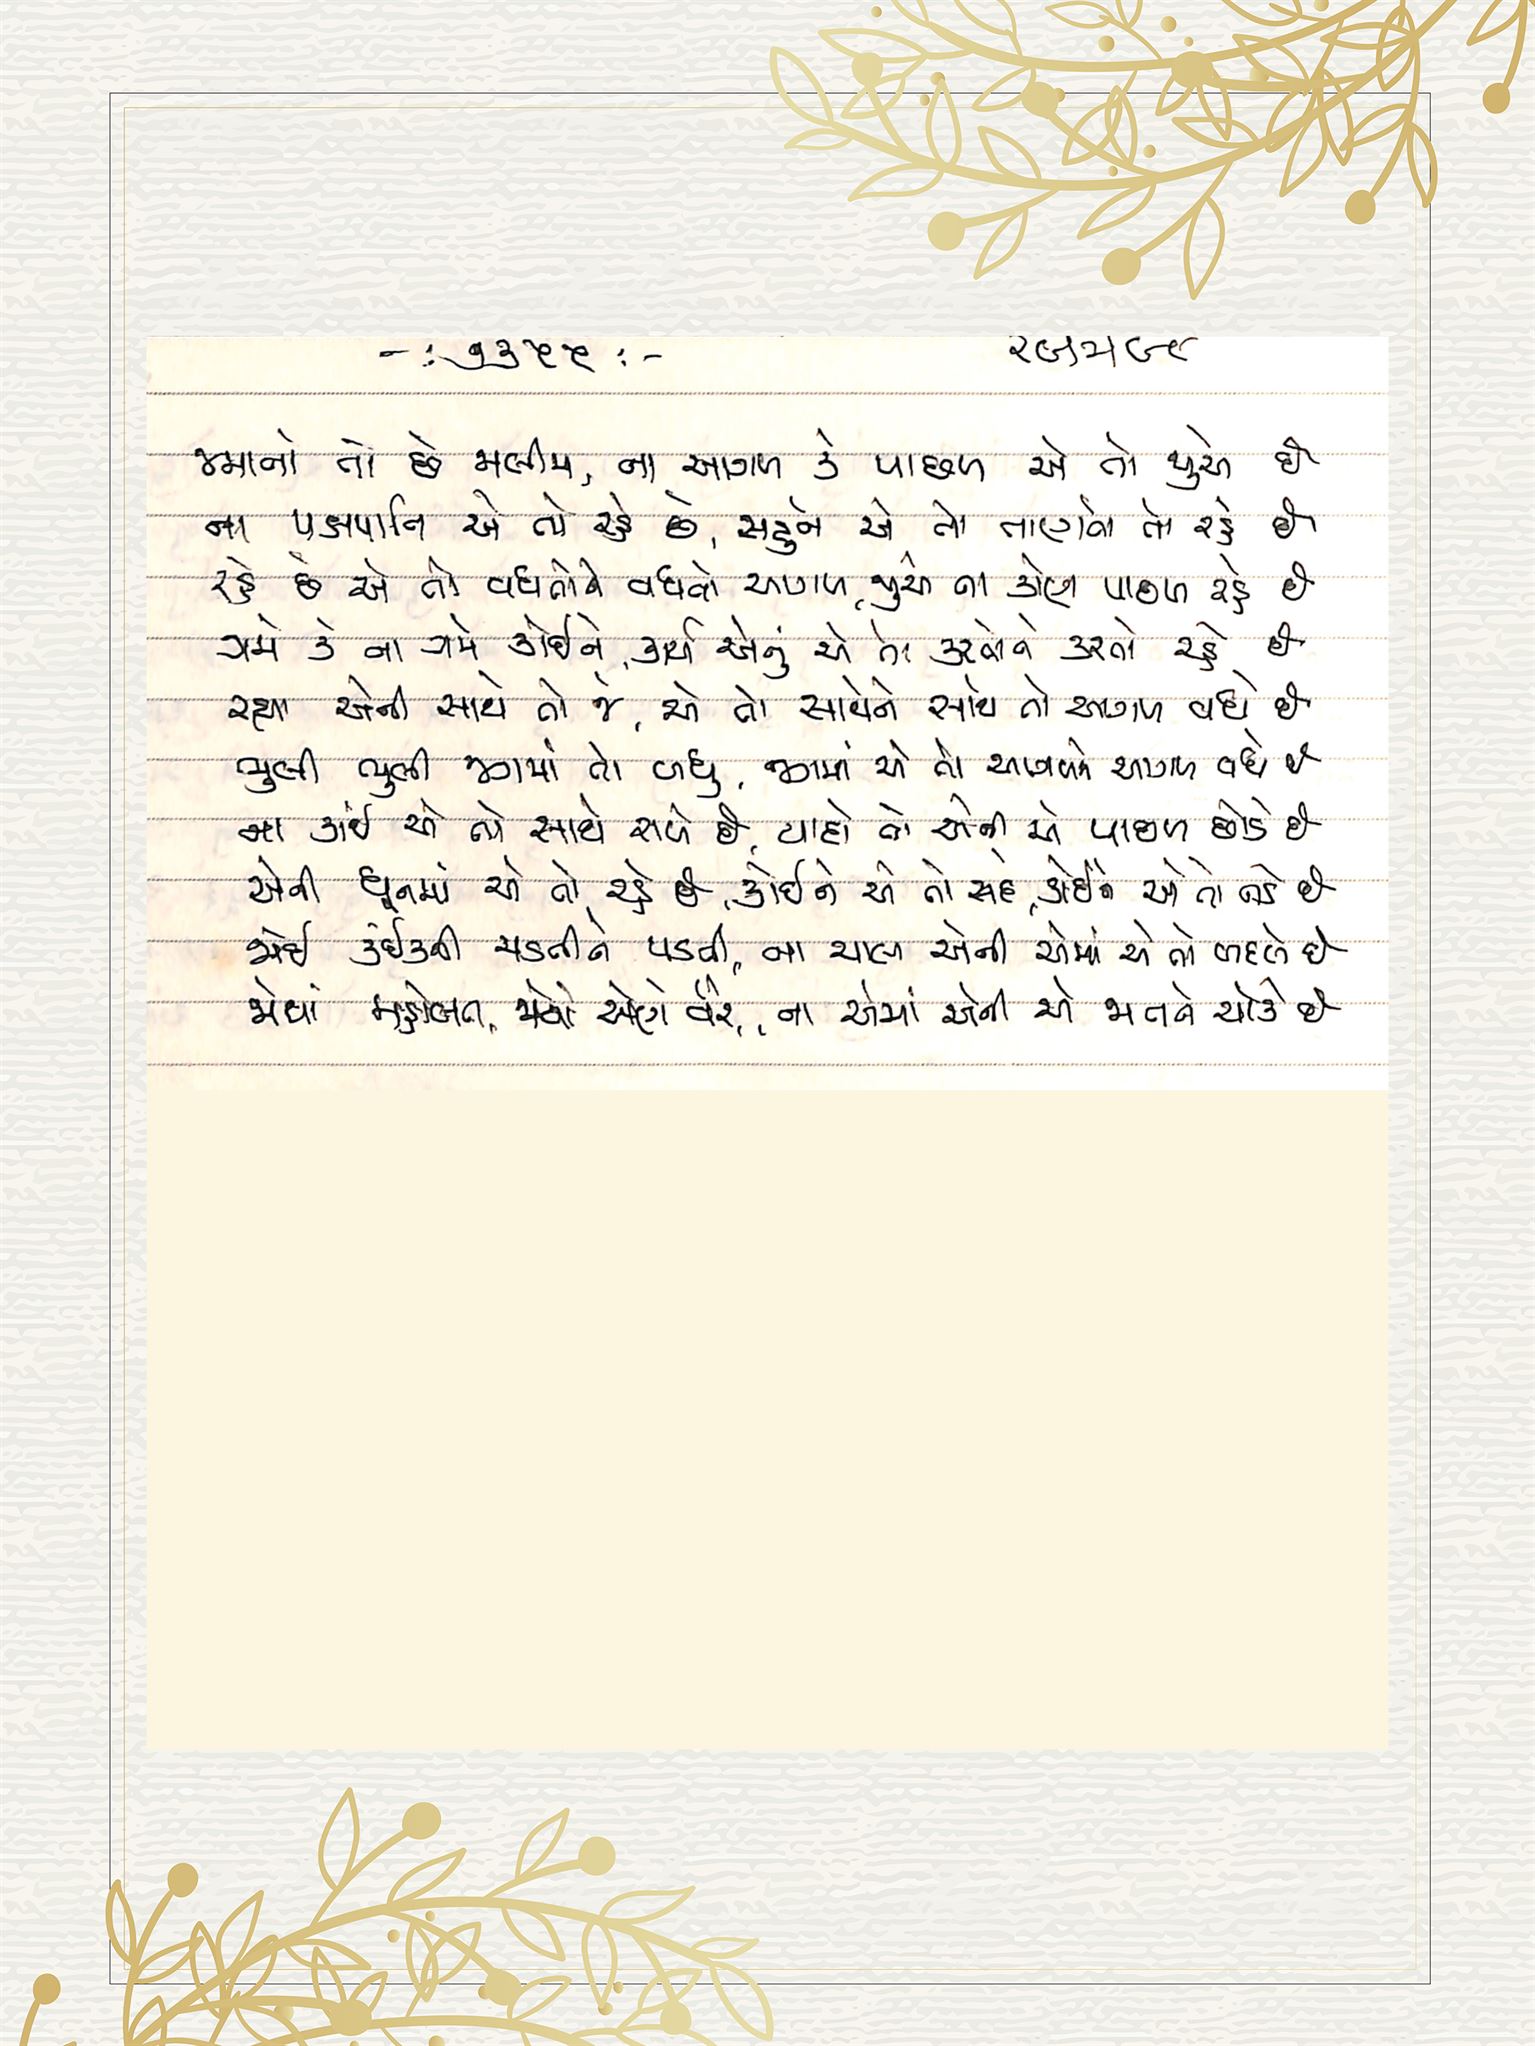 -: ૧૩૫૫ :-
જમાનો તો છે મલીમ, ના આગળ કે પાછળ એ તો જુએ છે
ના પક્ષપાતિ એ તો રહે છે, સહુને એ તો તાણતો તો રહે છે
રહે છે એ તો વધતોને વધતો આગળ, જુએ ના કોણ પાછળ રહે છે
ગમે કે ના ગમે કોઈને, કાર્ય એનું એ તો કરતોને કરતો રહે છે
રહ્યા એની સાથે તો જે, એ તો સાથેને સાથે તો આગળ વધે છે
ભુલી ભુલી જગમાં તો બધુ, જગમાં એ તો આગળને આગળ વધે છે
ના કાંઈ એ તો સાથે રાખે છે, યાદો તો એની એ પાછળ છોડે છે
એની ધૂનમાં એ તો રહે છે, કોઈને એ તો સહે, કોઈને એ તો નડે છે
જોઈ કંઈકની ચડતીને પડતી, ના ચાલ એની એમાં એ તો બદલે છે
જોયાં મહોબત, જોયો એણે વેર, ના એમાં એની એ જાતને રોકે છે